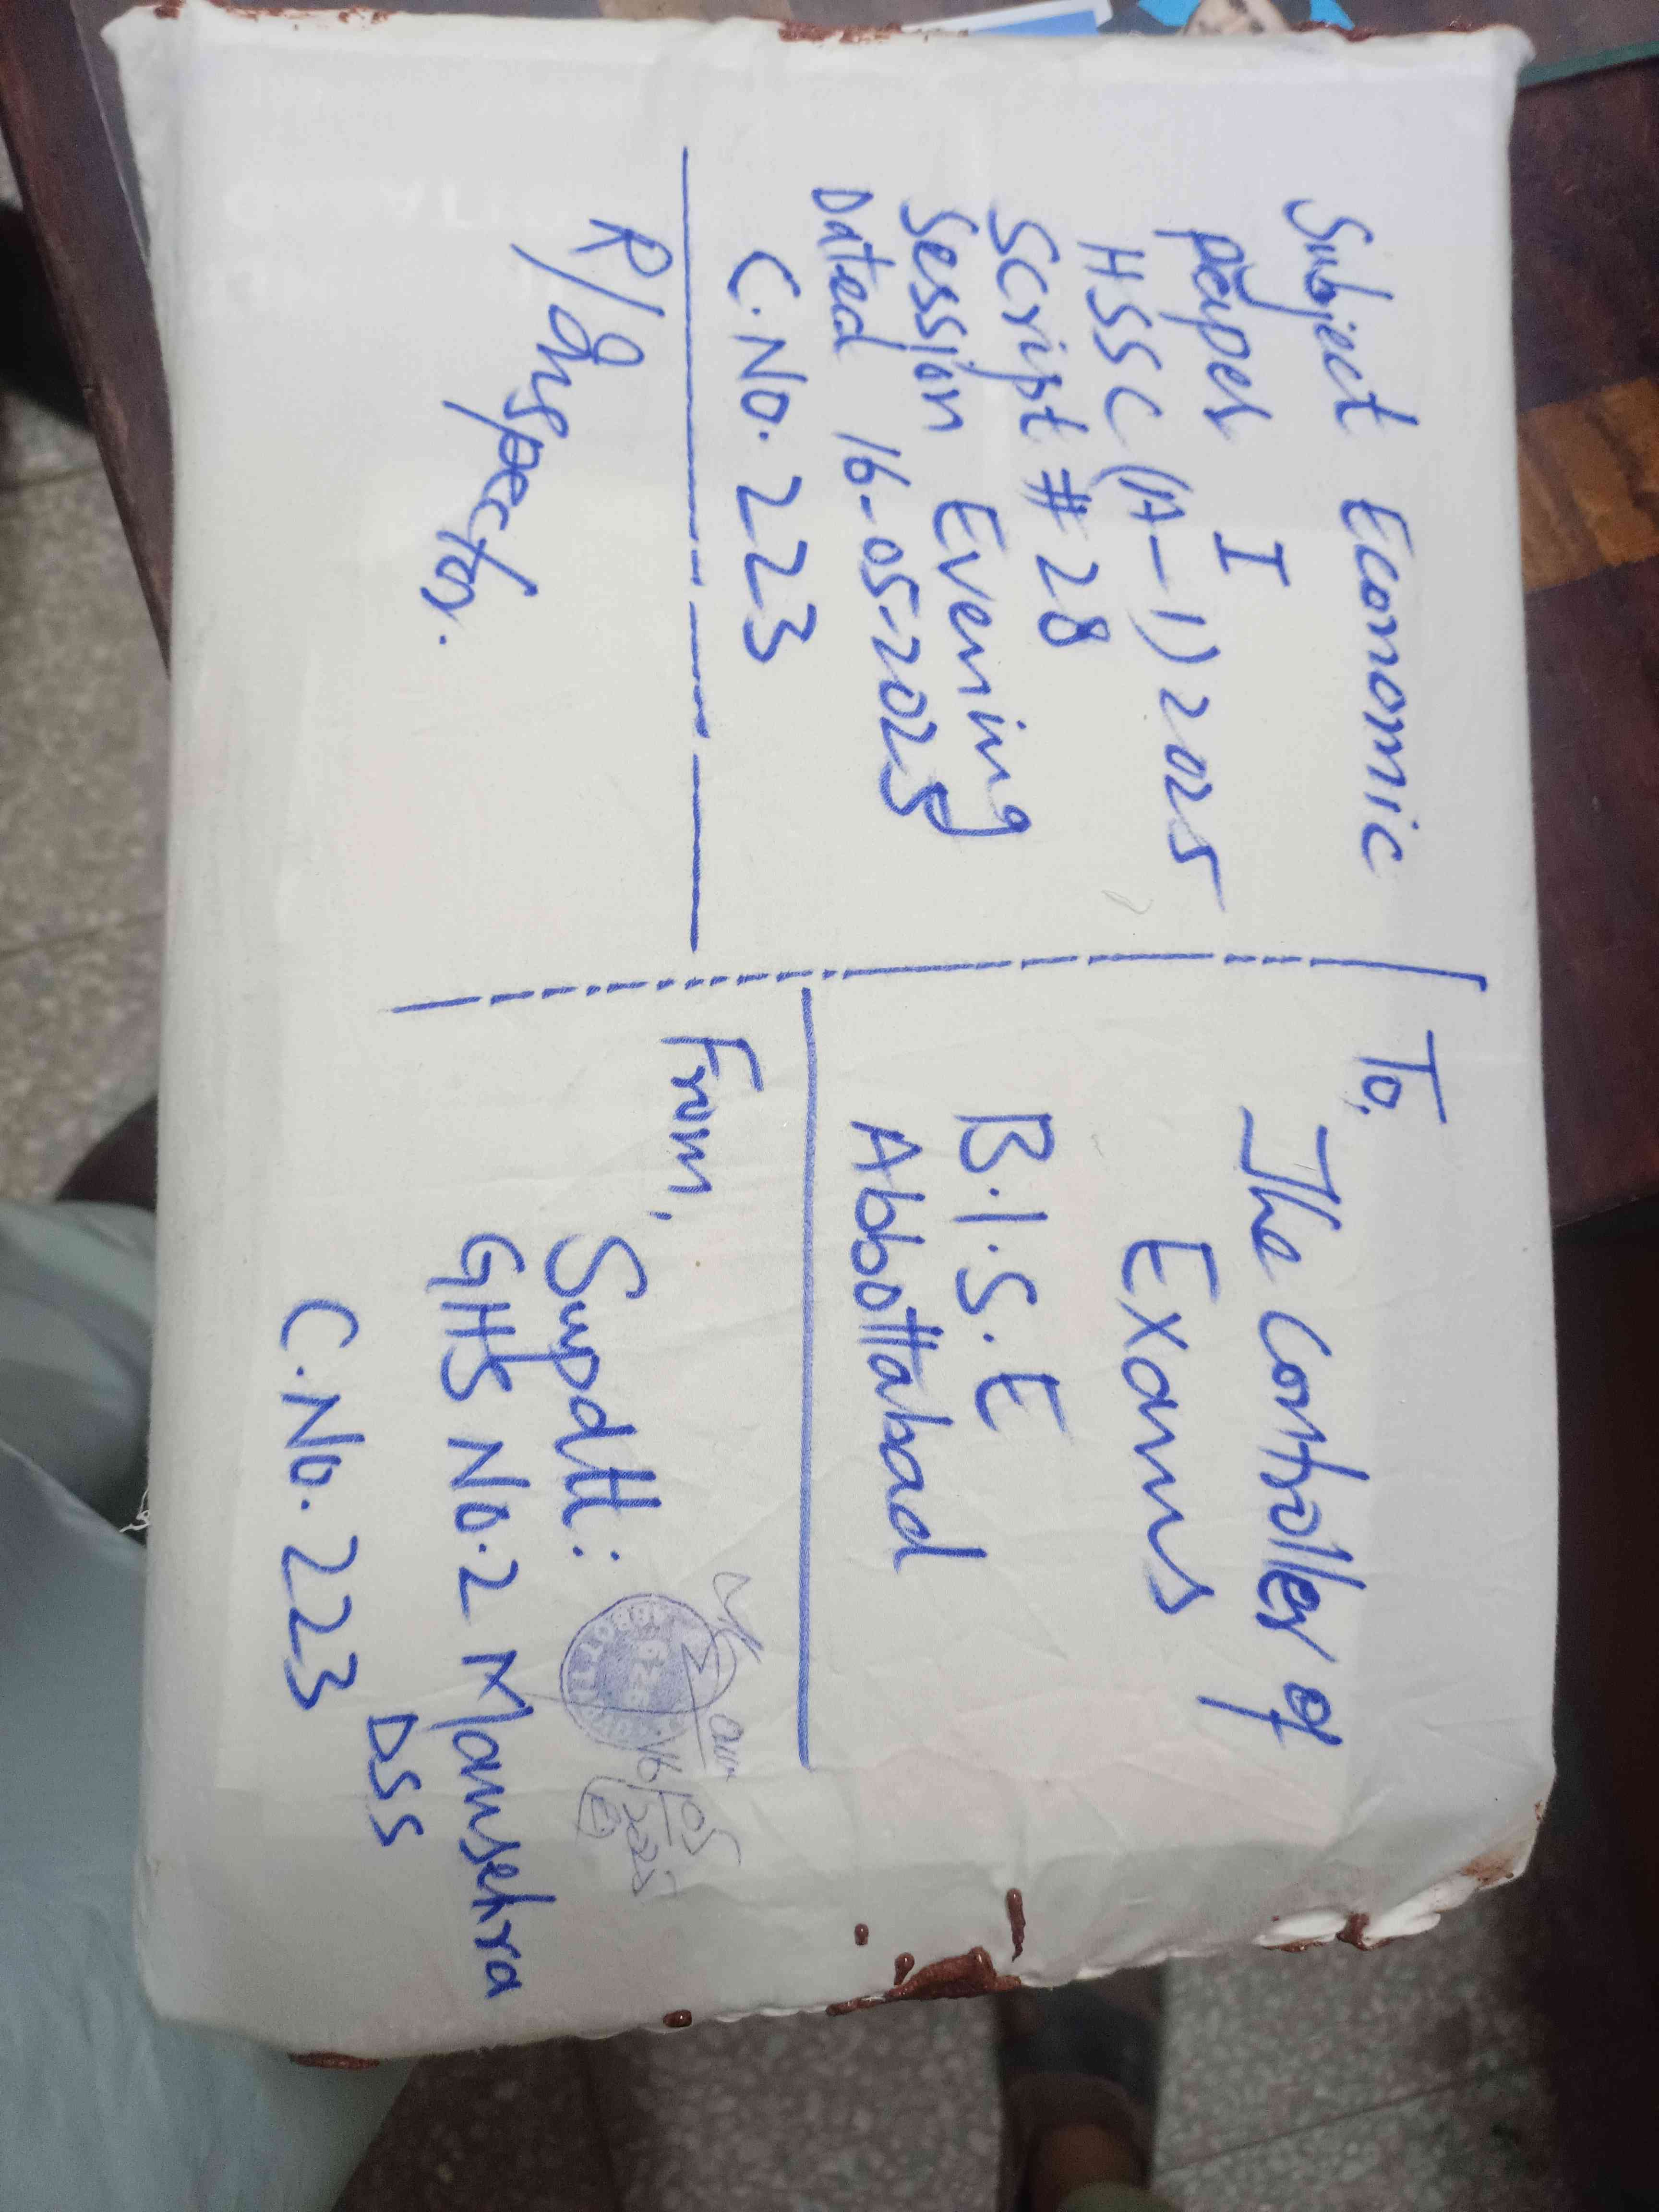 Subject Economic
Paper I
HSSC (A-1) 2025
Script # 28
Session Evening
Dated 16-05-2025
C.No. 223
R/Inspector.
To,
The Controller of
Exams
B.I.S.E
Abbottabad
From,
Supdtt:
GHS No.2 Mansehra
DSS
C.No. 223
16/05
2025
(E)